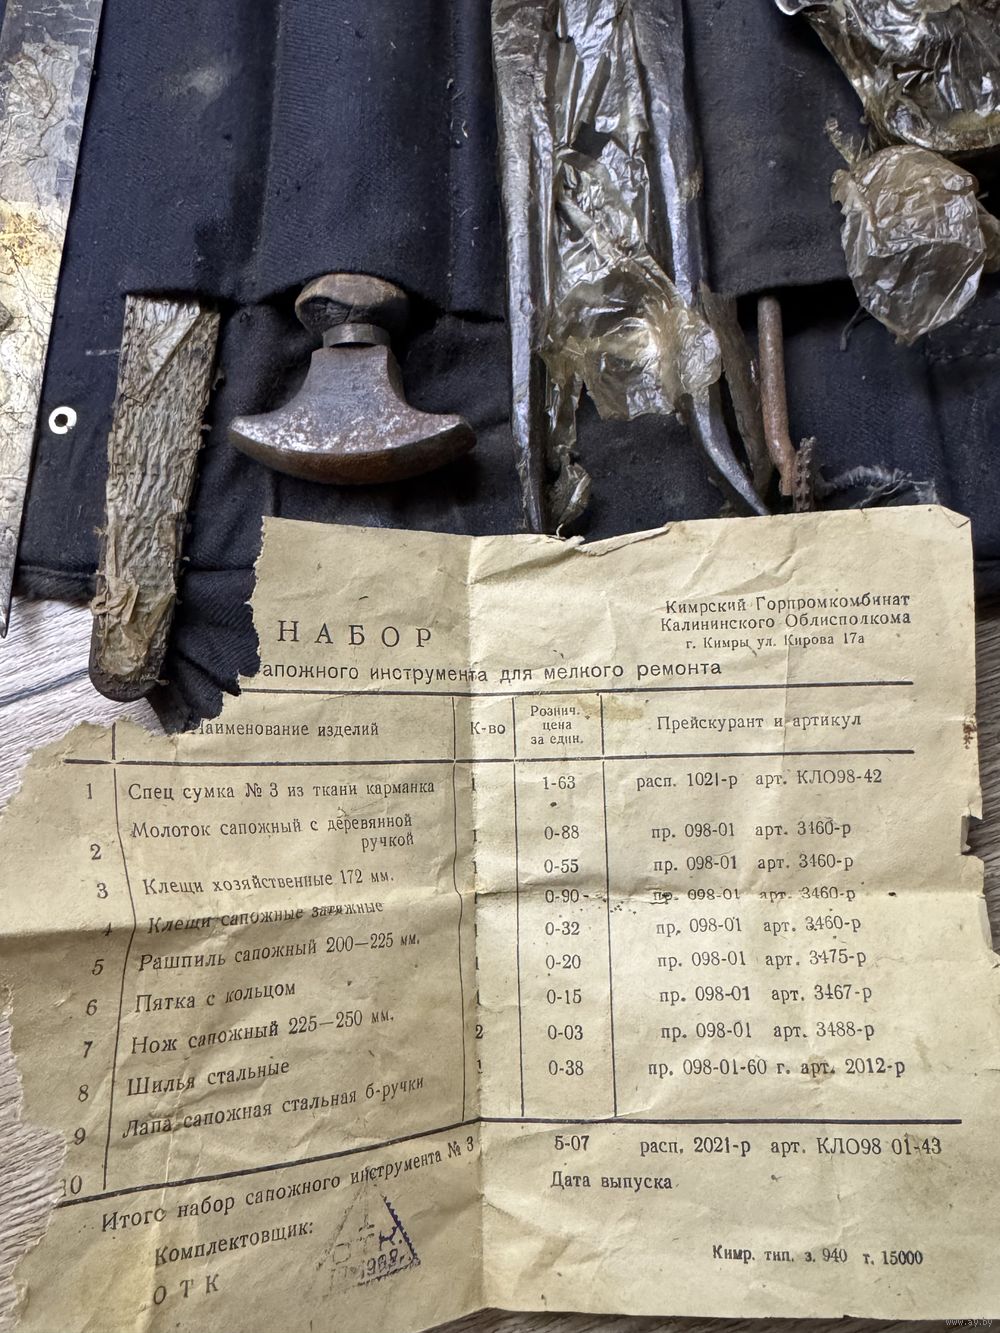 Кимрский Горпромкомбинат
Калининского Облисполкома
г. Кимры, ул. Кирова 17а
НАБОР
апожного инструмента для мелкого ремонта
Наименование изделий К-во Рознич. цена за един. Прейскурант и артикул
1 Спец сумка № 3 из ткани карманка 1 1-63 расп. 1021-р арт. КЛО98-42
2 Молоток сапожный с деревянной ручкой 1 0-88 пр. 098-01 арт. 3460-р
3 Клещи хозяйственные 172 мм. 1 0-55 пр. 098-01 арт. 3460-р
4 Клещи сапожные затяжные 1 0-90 пр. 098-01 арт. 3460-р
5 Рашпиль сапожный 200—225 мм. 1 0-32 пр. 098-01 арт. 3460-р
6 Пятка с кольцом 1 0-20 пр. 098-01 арт. 3475-р
7 Нож сапожный 225—250 мм. 1 0-15 пр. 098-01 арт. 3467-р
8 Шилья стальные 2 0-03 пр. 098-01 арт. 3488-р
9 Лапа сапожная стальная б-ручки 1 0-38 пр. 098-01-60 г. арт. 2012-р
10
Итого набор сапожного инструмента № 3 5-07 расп. 2021-р арт. КЛО98 01-43
Комплектовщик: Дата выпуска
ОТК
Кимр. тип. з. 940 т. 15000
www.ay.by